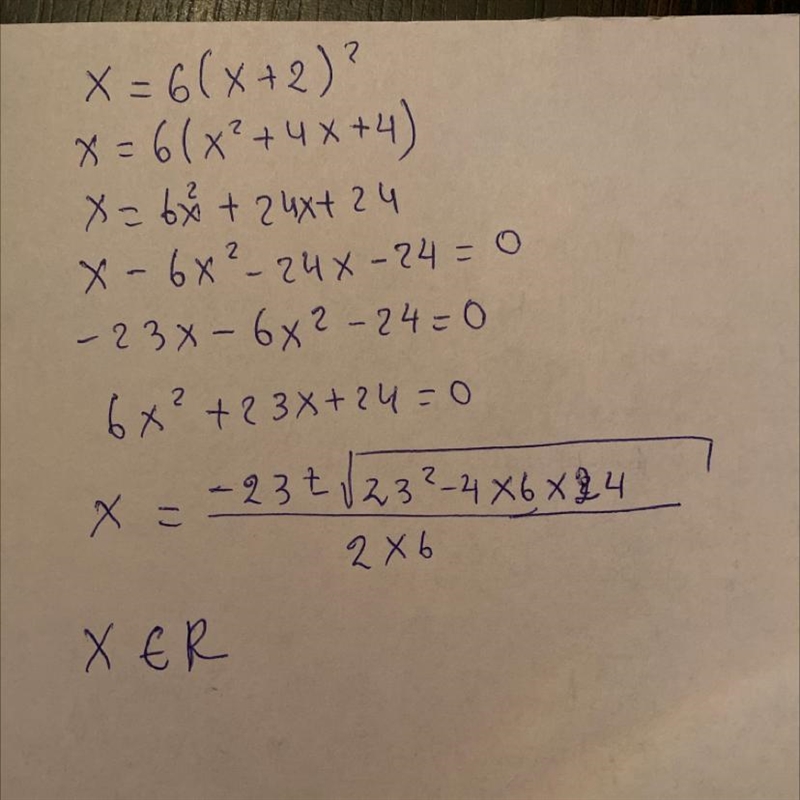 x = 6(x+2)²
x = 6(x² + 4x + 4)
x = 6x² + 24x + 24
x - 6x² - 24x - 24 = 0
-23x - 6x² - 24 = 0
6x² + 23x + 24 = 0
x = (-23 ± √(23² - 4 × 6 × 24)) / (2 × 6)
x ∈ R